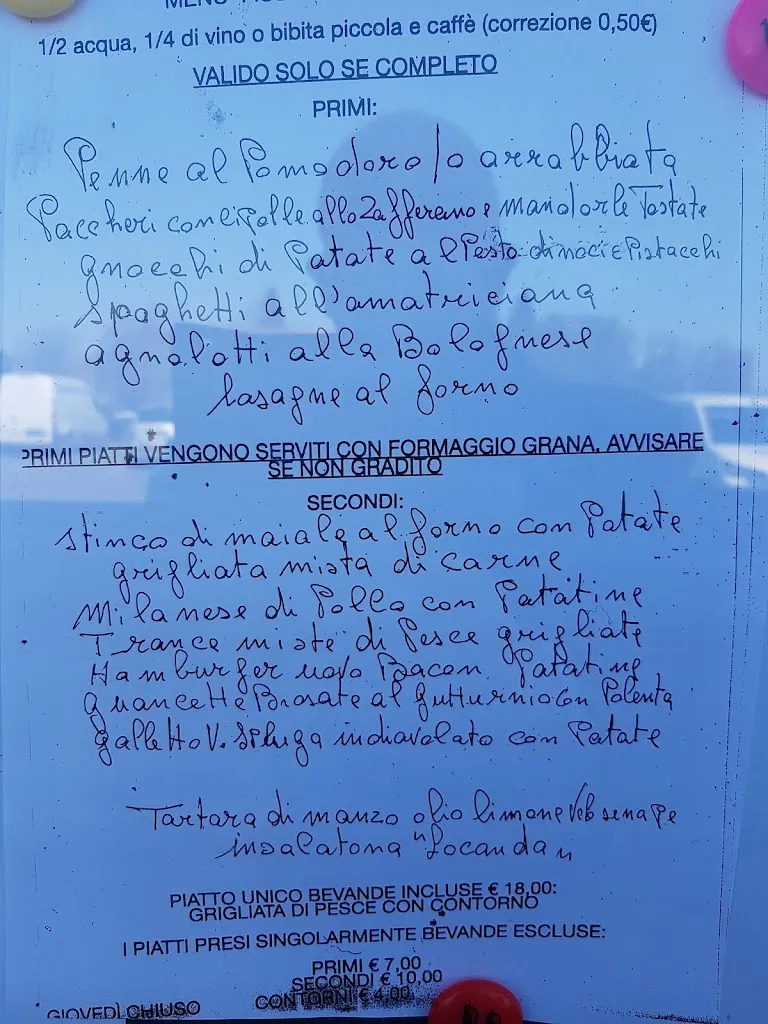 1/2 acqua, 1/4 di vino o bibita piccola e caffè (correzione 0,50€)
VALIDO SOLO SE COMPLETO
PRIMI:
Penne al Pomodoro / o arrabbiata
Paccheri con cipolle allo Zafferano e mandorle Tostate
gnocchi di Patate al Pesto di noci e Pistacchi
Spaghetti all'amatriciana
agnolotti alla Bolognese
lasagne al forno
PRIMI PIATTI VENGONO SERVITI CON FORMAGGIO GRANA. AVVISARE
SE NON GRADITO
SECONDI:
stinco di maiale al forno con Patate
grigliata mista di carne
Milanese di Pollo con Patatine
Trance miste di Pesce grigliate
Hamburger uovo Bacon Patatine
guancette Brasate al gutturnio con Polenta
galletto V. Spluga indiavolato con Patate
Tartara di manzo olio limone senape
insalatona "Locanda"
PIATTO UNICO BEVANDE INCLUSE € 18,00:
GRIGLIATA DI PESCE CON CONTORNO
I PIATTI PRESI SINGOLARMENTE BEVANDE ESCLUSE:
PRIMI € 7,00
SECONDI € 10,00
CONTORNI € 4,00
GIOVEDÌ CHIUSO